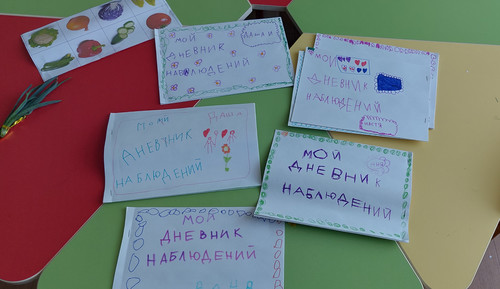 МОЙ
ДНЕВНИК
НАБЛЮДЕНИЙ
МОЙ
ДНЕВНИК
НАБЛЮДЕНИЙ
НАСТЯ
ДНЕВНИК
НАБЛЮДЕНИЙ
МОЙ
ДНЕВНИК
НАБЛЮДЕНИЙ
МОЙ
ДНЕВНИК
НАБЛЮДЕНИЙ